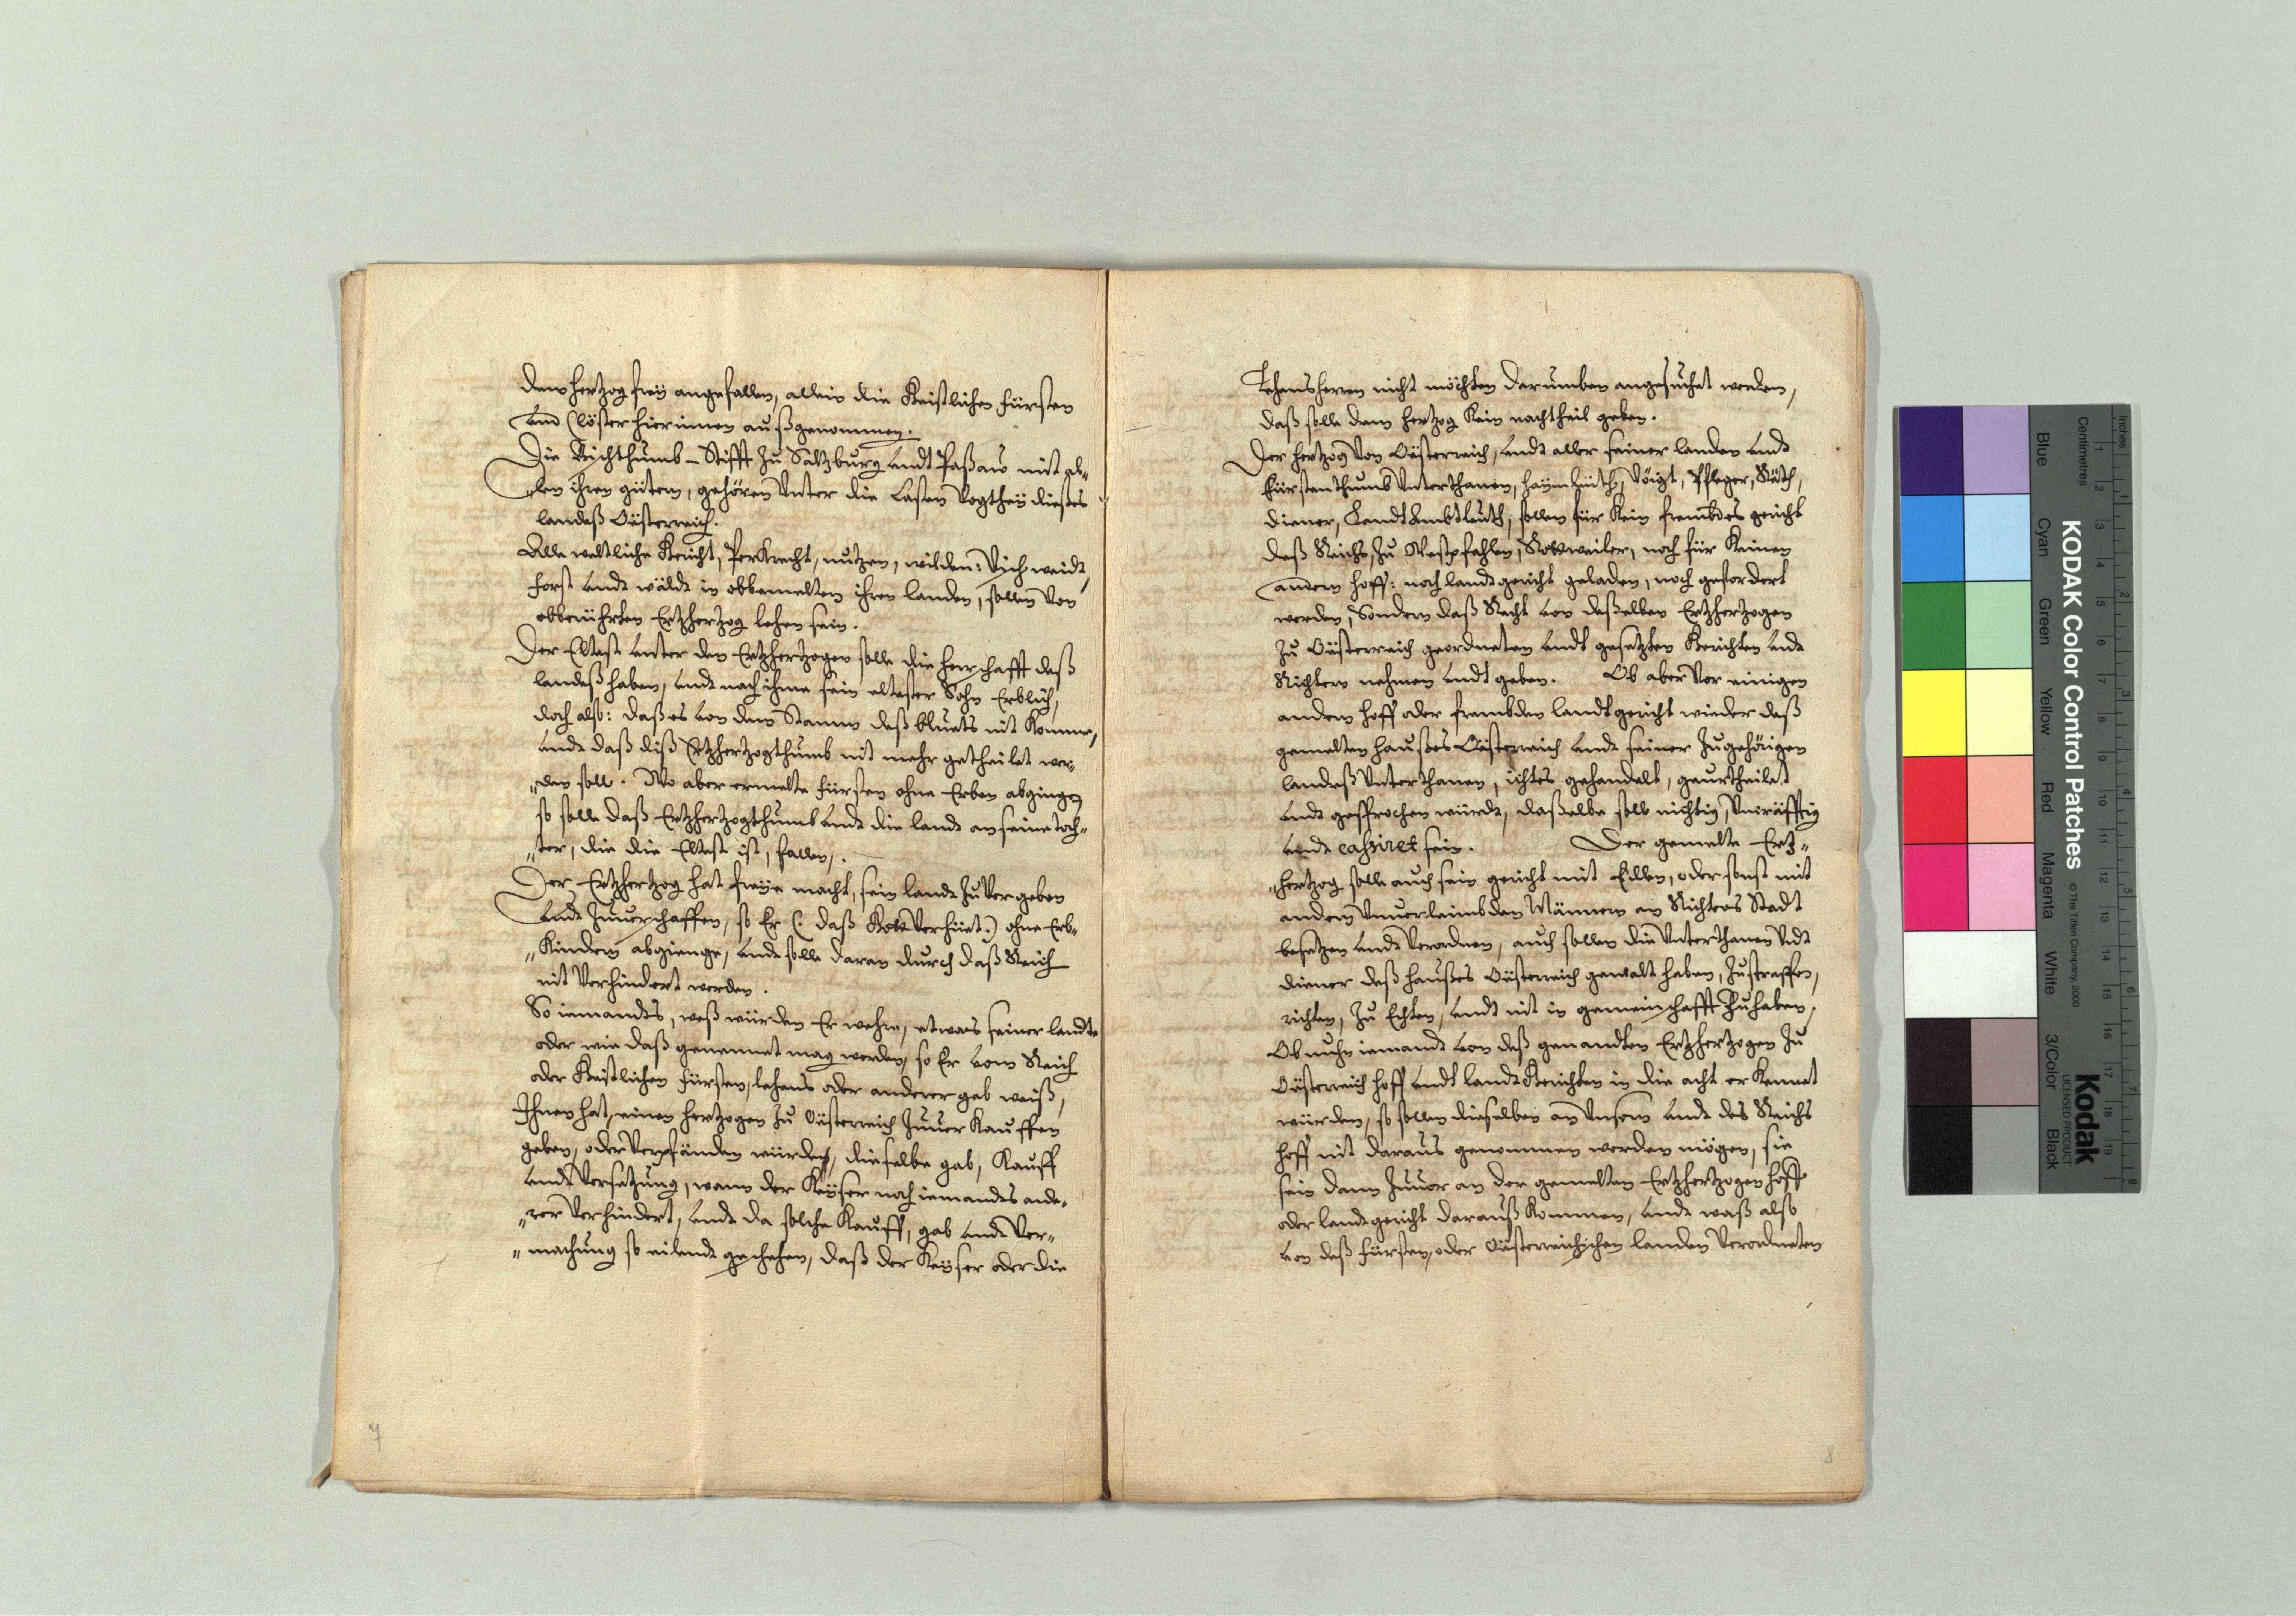 dem hertzog frey angefallen, allein die Geistlichen fürsten
und Clöster hierinnen außgenommen.
Die Bischthumb-Stifft zu Saltzburg undt Paßaw mit al„
„len ihren gütern, gehören unter die Casten Vogtheÿ dießes
landeß Oästerreich.
Alle weltliche Gericht, Perkrecht, nutzen, wilden: Vich weidt,
forst undt wäldt in obbemelten ihren landen, sollen von
obberührten Ertzhertzog lehen sein.
Der Eltest unter den Ertzhertzogen solle die Herrschafft daß
landeß haben, undt nach ihme sein eltester Sohn Erblich,
doch also: daß es von dem Stamm deß bluets nit komme,
undt daß diß Ertzhertzogthumb nit mehr getheilet wer„
„den soll. Wo aber ermelte fürsten ohne Erben abgingen
so solle daß Ertzhertzogthumb undt die landt an seine toch„
„ter, die die Eltest ist, fallen.
Der Ertzhertzog hat freÿe macht, sein landt zu vergeben
undt zuuerschaffen, so Er (: daß Gott verhüet:) ohne Erb„
„Kindern abgienge, undt solle daran durch daß Reich
nit verhindert werden.
So iemandts, weß würden Er wehre, etwas seiner landte
oder wie daß genennet mag werden, so Er vom Reich
oder Geistlichen fürsten, lehens oder anderer gab weiß,
Ihnen hat, einen hertzogen zu Oästerreich zuuer Kauffen
geben, oder verpfänden würden, dieselbe gab, Kauff
undt versetzung, wann der Keÿser noch iemandts ande„
„rer verhindert, undt da solche Kauff, gab undt ver„
„machung so eilendt geschehen, daß der Keÿser oder die
7
Lehensherren nicht möchten darumben angesuchet werden,
daß solle dem hertzog Kein nachtheil geben.
Der hertzog von Oästerreich, undt aller seiner landen undt
fürstenthumb unterthanen, Vöigt, Pfleger, Räth,
diener, Landt Ambtleuth, sollen für Kein frembdes gericht
deß Reichs, zu Westpfahlen, Rottweiler, noch für Keinen
andern hoff: noch landtgericht geladen, noch gefordert
werden, Sondern daß Recht von deßelben Ertzhertzogen
zu Oästerreich geordneten undt gesetzten Gerichten undt
Richtern nehmen undt geben. Ob aber vor einigen
andern hoff oder frembden landtgericht wieder daß
gemelten haußes Oästerreich undt seiner zugehörigen
landeß unterthanen, ichtes gehandelt, geurtheilet
undt gesprochen würdt, daßelbe soll nichtig, unkräfftig
undt cassiret sein. Der gemelte Ertz„
„hertzog solle auch sein gericht mit Edlen, oder sonst mit
andern unuerleimbden Männern an Richters Stadt
besetzen undt verordnen, auch sollen die unterthanen undt
diener deß haußes Oästerreich gewalt haben, zustraffen,
richten, zu Echten, undt nit in gemeinschafft zuhaben.
Ob nuhn iemandt von deß genandten Ertzhertzogen zu
Oästerreich hoff undt landt Gerichten in die acht er Kennet
würden, so sollen dieselben an unserm undt des Reichs
hoff nit daraus genommen werden mögen, sie
sein dann zuuor an der gemelten Ertzhertzogen hoff
oder landtgericht darauß Kommen, undt waß also
von deß fürsten, oder Oästerreichischen landen verordneten
8
Inches
Centimetres
KODAK Color Control Patches
© The Tiffen Company, 2000
Kodak
LICENSED PRODUCT
Blue
Cyan
Green
Yellow
Red
Magenta
White
3/Color
Black